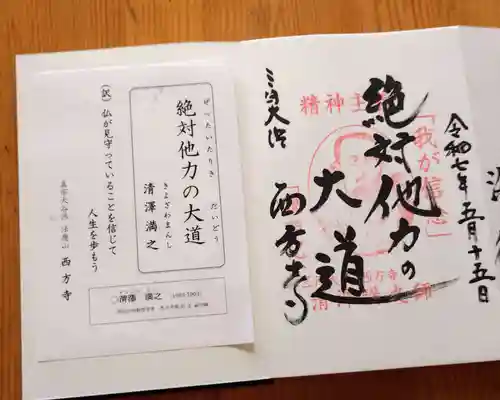 令和七年五月十五日
絶対他力の
大道
三河大浜
西方寺
精神主
「我が信念」
西方寺
清澤満之師
ぜったいたりき だいどう
絶対他力の大道
きよざわまんし
清澤満之
(訳) 仏が見守っていることを信じて
人生を歩もう
真宗大谷派
西方寺
清澤 満之